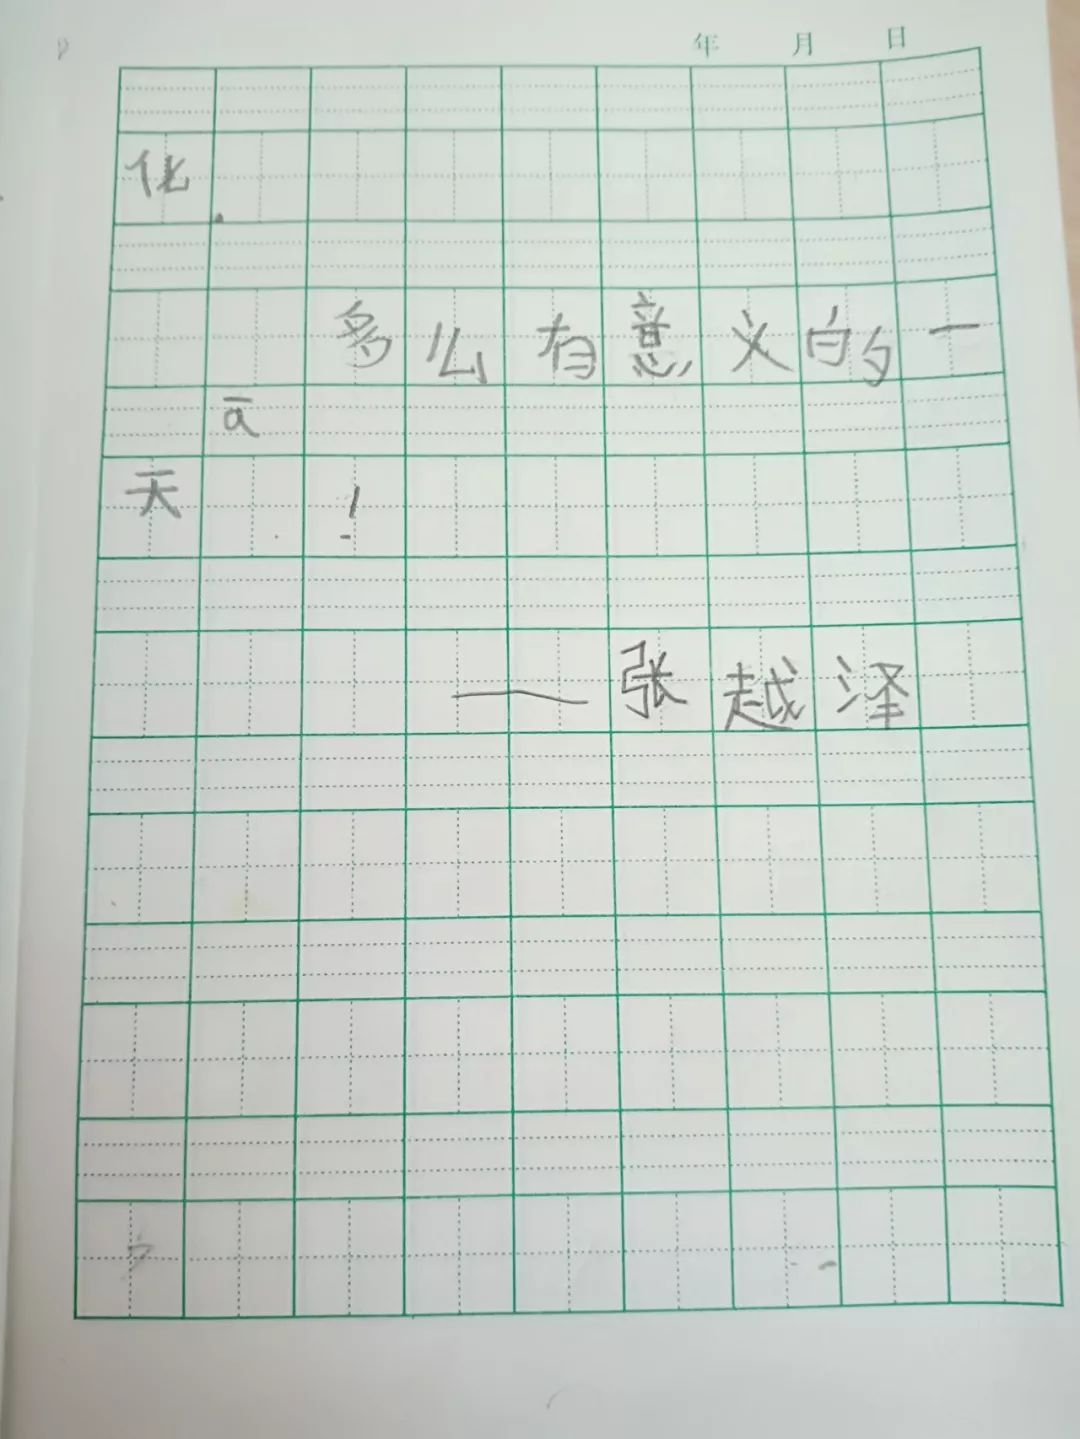 年 月 日
化.
多么有意义的一
ā
天 !
——张越泽